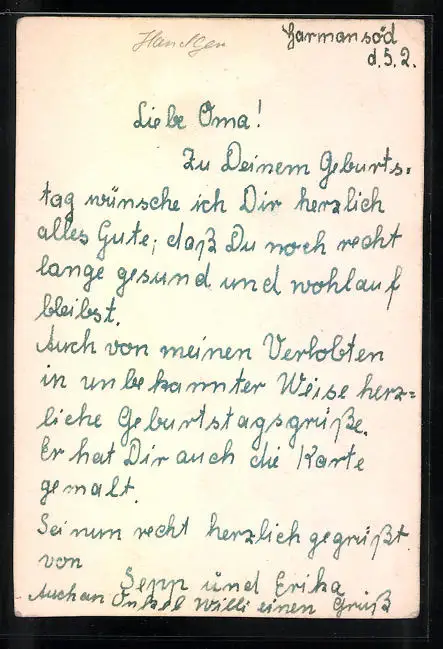 Harmansöd
d. 5. 2.
Liebe Oma!
Zu Deinem Geburts-
tag wünsche ich Dir herzlich
alles Gute; daß Du noch recht
lange gesund und wohlauf
bleibst.
Auch von meinen Verlobten
in unbekannter Weise herz=
liche Geburtstagsgrüße.
Er hat Dir auch die Karte
gemalt.
Sei nun recht herzlich gegrüßt
von
Sepp und Erika
Auch an Onkel Willi einen Gruß